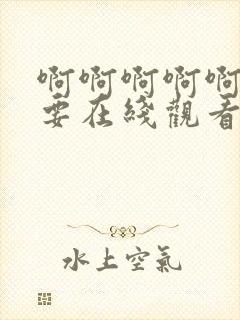 啊啊啊啊啊
要在綫觀看
水上空氣